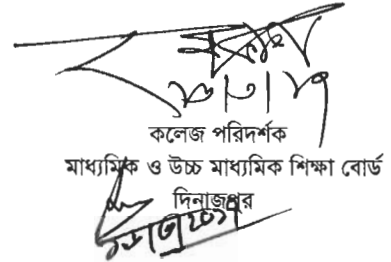 কলেজ পরিদর্শক
মাধ্যমিক ও উচ্চ মাধ্যমিক শিক্ষা বোর্ড
দিনাজপুর